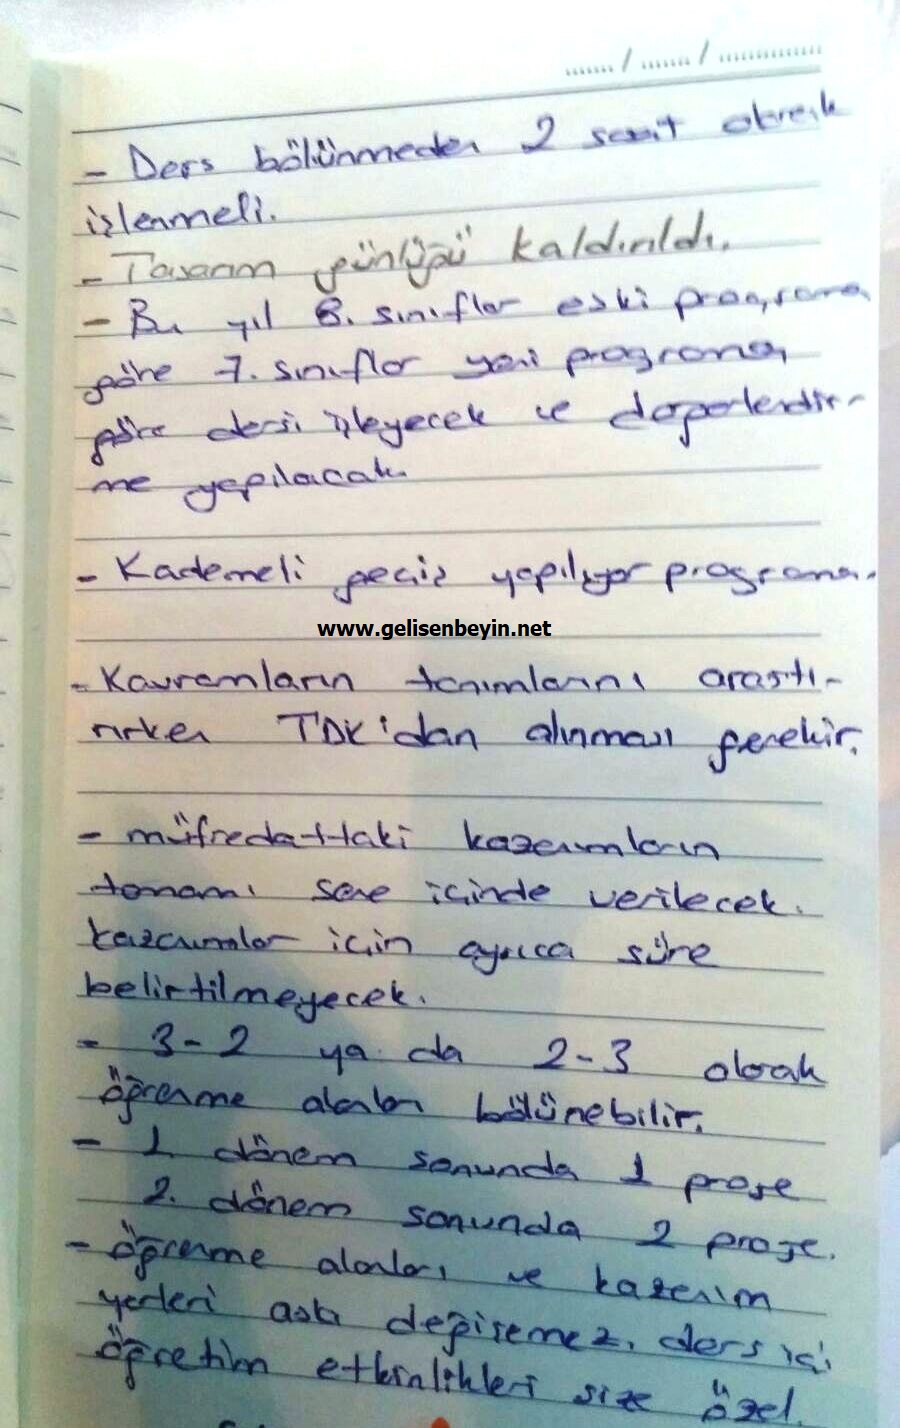 ....... / ....... / ..............
- Ders bölünmeden 2 saat olarak
işlenmeli.
- Tasarım günlüğü kaldırıldı.
- Bu yıl 8. sınıflar eski programa
göre 7. sınıflar yeni programa
göre dersi işleyecek ve değerlendir-
me yapılacak.
- Kademeli geçiş yapılıyor programa.
www.gelisenbeyin.net
- Kavramların tanımlarını araştı-
rırken TDK'dan alınması gerekir.
- müfredattaki kazanımların
tamamı sene içinde verilecek.
kazanımlar için ayrıca süre
belirtilmeyecek.
- 3-2 ya da 2-3 olarak
öğrenme alanları bölünebilir.
- 1. dönem sonunda 1 proje
2. dönem sonunda 2 proje.
- öğrenme alanları ve kazanım
yerleri asla değişemez. ders içi
öğretim etkinlikleri size özel.